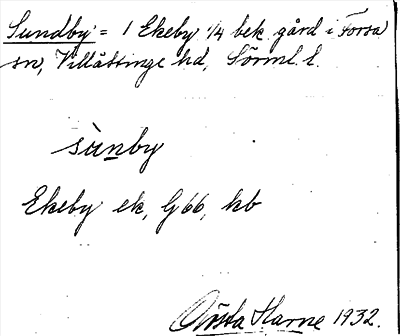 Sundby = 1 Ekeby 1/4 bek. gård i Forssa
sn, Villåttinge hd, Sörml. l.
sùnby
Ekeby ek, G 66, kb
Gösta Harne 1932.